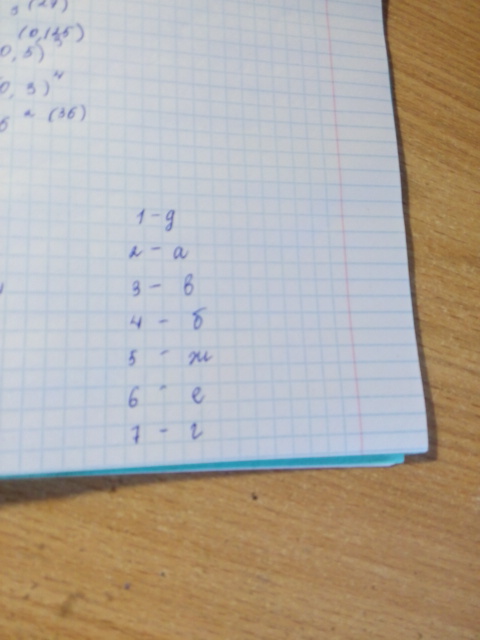 3 (27)
(0,125)
0,5)³
0,3)⁴
6² (36)
1 - д
2 - а
3 - в
4 - б
5 - ж
6 - е
7 - г